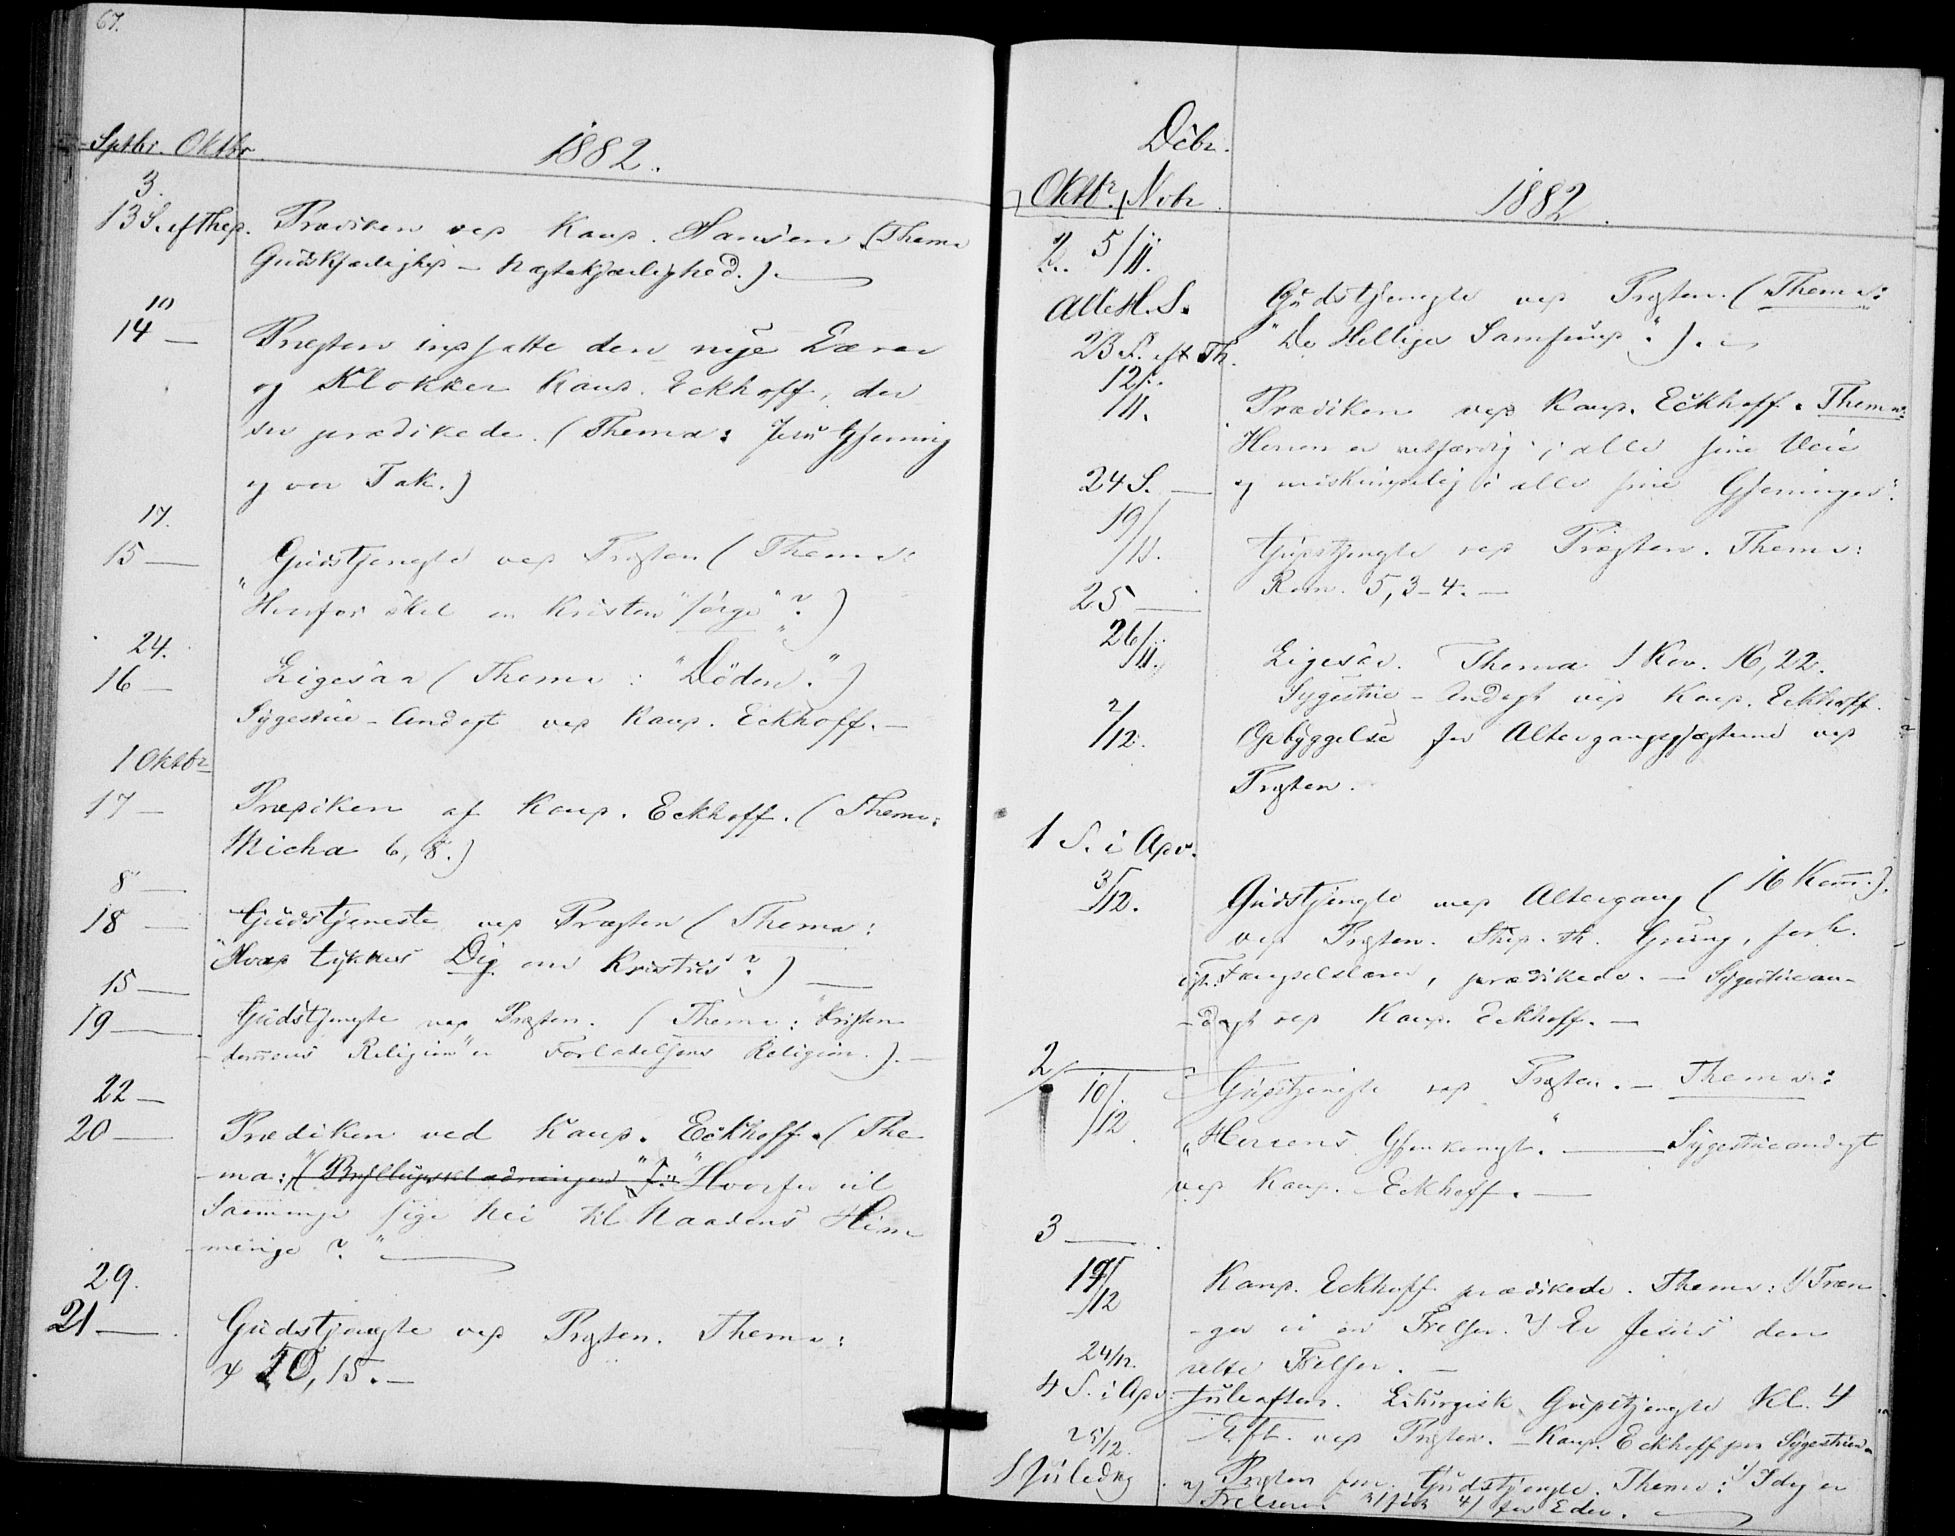 67.
Sptbr. Oktbr. 1882.
3.
13 S. eft hep. Prædiken ved Kand. Hansen. (Thema
Gudskjærlighed – Næstekjærlighed.). —
10
14 — Præsten indsatte den nye Lærer
og Klokker Kand. Eckhoff, der
prædikede. (Thema: Jesu Gjerning
og vor Tak.)
17.
15 — Gudstjeneste ved Præsten (Thema:
"Hvorfor skal en Kristen "sørge"?)
24.
16 — Ligesaa (Thema: "Døden".)
Sygestue-Andagt ved Kand. Eckhoff. —
1 Oktbr
17 — Prædiken af Kand. Eckhoff. (Thema:
Micha 6, 8.)
8 —
18 — Gudstjeneste ved Præsten (Thema:
"Hvad tykkes Dig om Kristus"?) —
15 —
19 — Gudstjeneste ved Præsten. (Thema: "Kristen-
-dommens Religion" er Forladelsens Religion.). —
22 —
20 — Prædiken ved Kand. Eckhoff. (The-
-ma: (Bryllupsklædningen). "Hvorfor vil
sige Nei til Naadens Him-
-merige?" —
29.
21 — Gudstjeneste ved Præsten. Thema:
ψ 50, 15. —
Dcbr.
Oktbr. Nvbr. 1882.
2. 5/11.
Alle H. S. Gudstjeneste ved Præsten. (Thema:
"De Helliges Samfund".). —
23 S. eft Th.
12/11. Prædiken ved Kand. Eckhoff. Thema:
Herren er retfærdig i alle sine Veie
24 S. — og miskundelig i alle sine Gjerninger".
19/11. Gudstjeneste ved Præsten. Thema:
Rom. 5, 3-4. —
25 —
26/11. Ligesaa. Thema 1 Kor. 16, 22.
Sygestue-Andagt ved Kand. Eckhoff.
2/12. Opbyggelse for Altergangsgjæsterne ved
Præsten.
1 S. i Adv.
3/12. Gudstjeneste med Altergang (16 Kom.).
ved Præsten. Stud. th. Gruny, forh.
Fængselslærer, prædikede. — Sygestuean-
-dagt ved Kand. Eckhoff. —
2 —
10/12 Gudstjeneste ved Præsten. — Thema:
"Herrens Gjenkomst." — Sygestueandagt
ved Kand. Eckhoff. —
3 —
17/12 Kand. Eckhoff prædikede. Thema: 1) Træn-
-ger vi en Frelser. 2) Er Jesus den
rette Frelser. —
24/12.
4 S. i Adv. Juleaften. Liturgisk Gudstjeneste Kl. 4
Eft. ved Præsten. — Kand. Eckhoff paa Sygestuen.
25/12.
1 Juledag. Præsten Gudstjeneste. Thema: 1) I dag er
2) Frelseren 3) født 4) for Eder. —